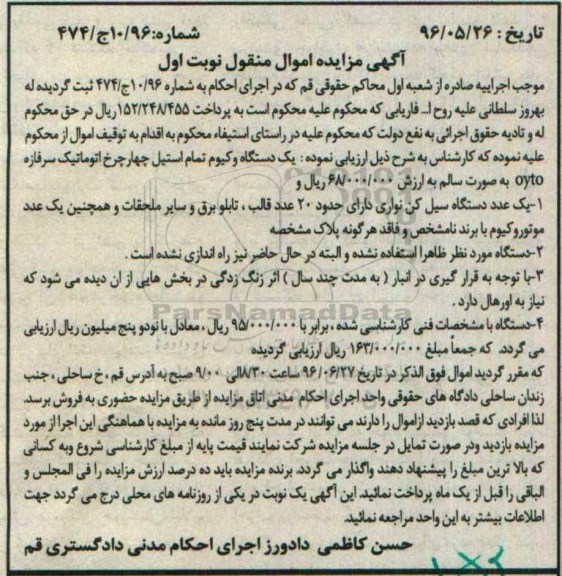 تاریخ : ۹۶/۰۵/۲۶ شماره:۱۰/۹۶ج/۴۷۴
آگهی مزایده اموال منقول نوبت اول
موجب اجراییه صادره از شعبه اول محاکم حقوقی قم که در اجرای احکام به شماره ۱۰/۹۶ج/۴۷۴ ثبت گردیده له
بهروز سلطانی علیه روح ا... فاریابی که محکوم علیه محکوم است به پرداخت ۱۵۲/۲۴۸/۴۵۵ریال در حق محکوم
له و تادیه حقوق اجرائی به نفع دولت که محکوم علیه در راستای استیفاء محکوم به اقدام به توقیف اموال از محکوم
علیه نموده که کارشناس به شرح ذیل ارزیابی نموده : یک دستگاه وکیوم تمام استیل چهارچرخ اتوماتیک سرفازه
oyto به صورت سالم به ارزش ۶۸/۰۰۰/۰۰۰ ریال و
۱-یک عدد دستگاه سیل کن نواری دارای حدود ۲۰ عدد قالب ، تابلو برق و سایر ملحقات و همچنین یک عدد
موتوروکیوم با برند نامشخص و فاقد هرگونه پلاک مشخصه
۲-دستگاه مورد نظر ظاهرا استفاده نشده و البته در حال حاضر نیز راه اندازی نشده است .
۳-با توجه به قرار گیری در انبار ( به مدت چند سال ) اثر زنگ زدگی در بخش هایی از ان دیده می شود که
نیاز به اورهال دارد .
ParsNamadData
۴-دستگاه با مشخصات فنی کارشناسی شده ، برابر با ۹۵/۰۰۰/۰۰۰ ریال ، معادل با نودو پنج میلیون ریال ارزیابی
می گردد. که جمعاً مبلغ ۱۶۳/۰۰۰/۰۰۰ ریال ارزیابی گردیده
که مقرر گردید اموال فوق الذکر در تاریخ ۹۶/۰۶/۲۷ ساعت ۸/۳۰الی ۹/۰۰ صبح به آدرس قم ، خ ساحلی ، جنب
زندان ساحلی دادگاه های حقوقی واحد اجرای احکام مدنی اتاق مزایده از طریق مزایده حضوری به فروش برسد.
لذا افرادی که قصد بازدید ازاموال را دارند می توانند در مدت پنج روز مانده به مزایده با هماهنگی این اجرا از مورد
مزایده بازدید ودر صورت تمایل در جلسه مزایده شرکت نمایند قیمت پایه از مبلغ کارشناسی شروع وبه کسانی
که بالا ترین مبلغ را پیشنهاد دهند واگذار می گردد. برنده مزایده باید ده درصد ارزش مزایده را فی المجلس و
الباقی را قبل از یک ماه پرداخت نمائید. این آگهی یک نوبت در یکی از روزنامه های محلی درج می گردد جهت
اطلاعات بیشتر به این واحد مراجعه نمائید.
حسن کاظمی دادورز اجرای احکام مدنی دادگستری قم